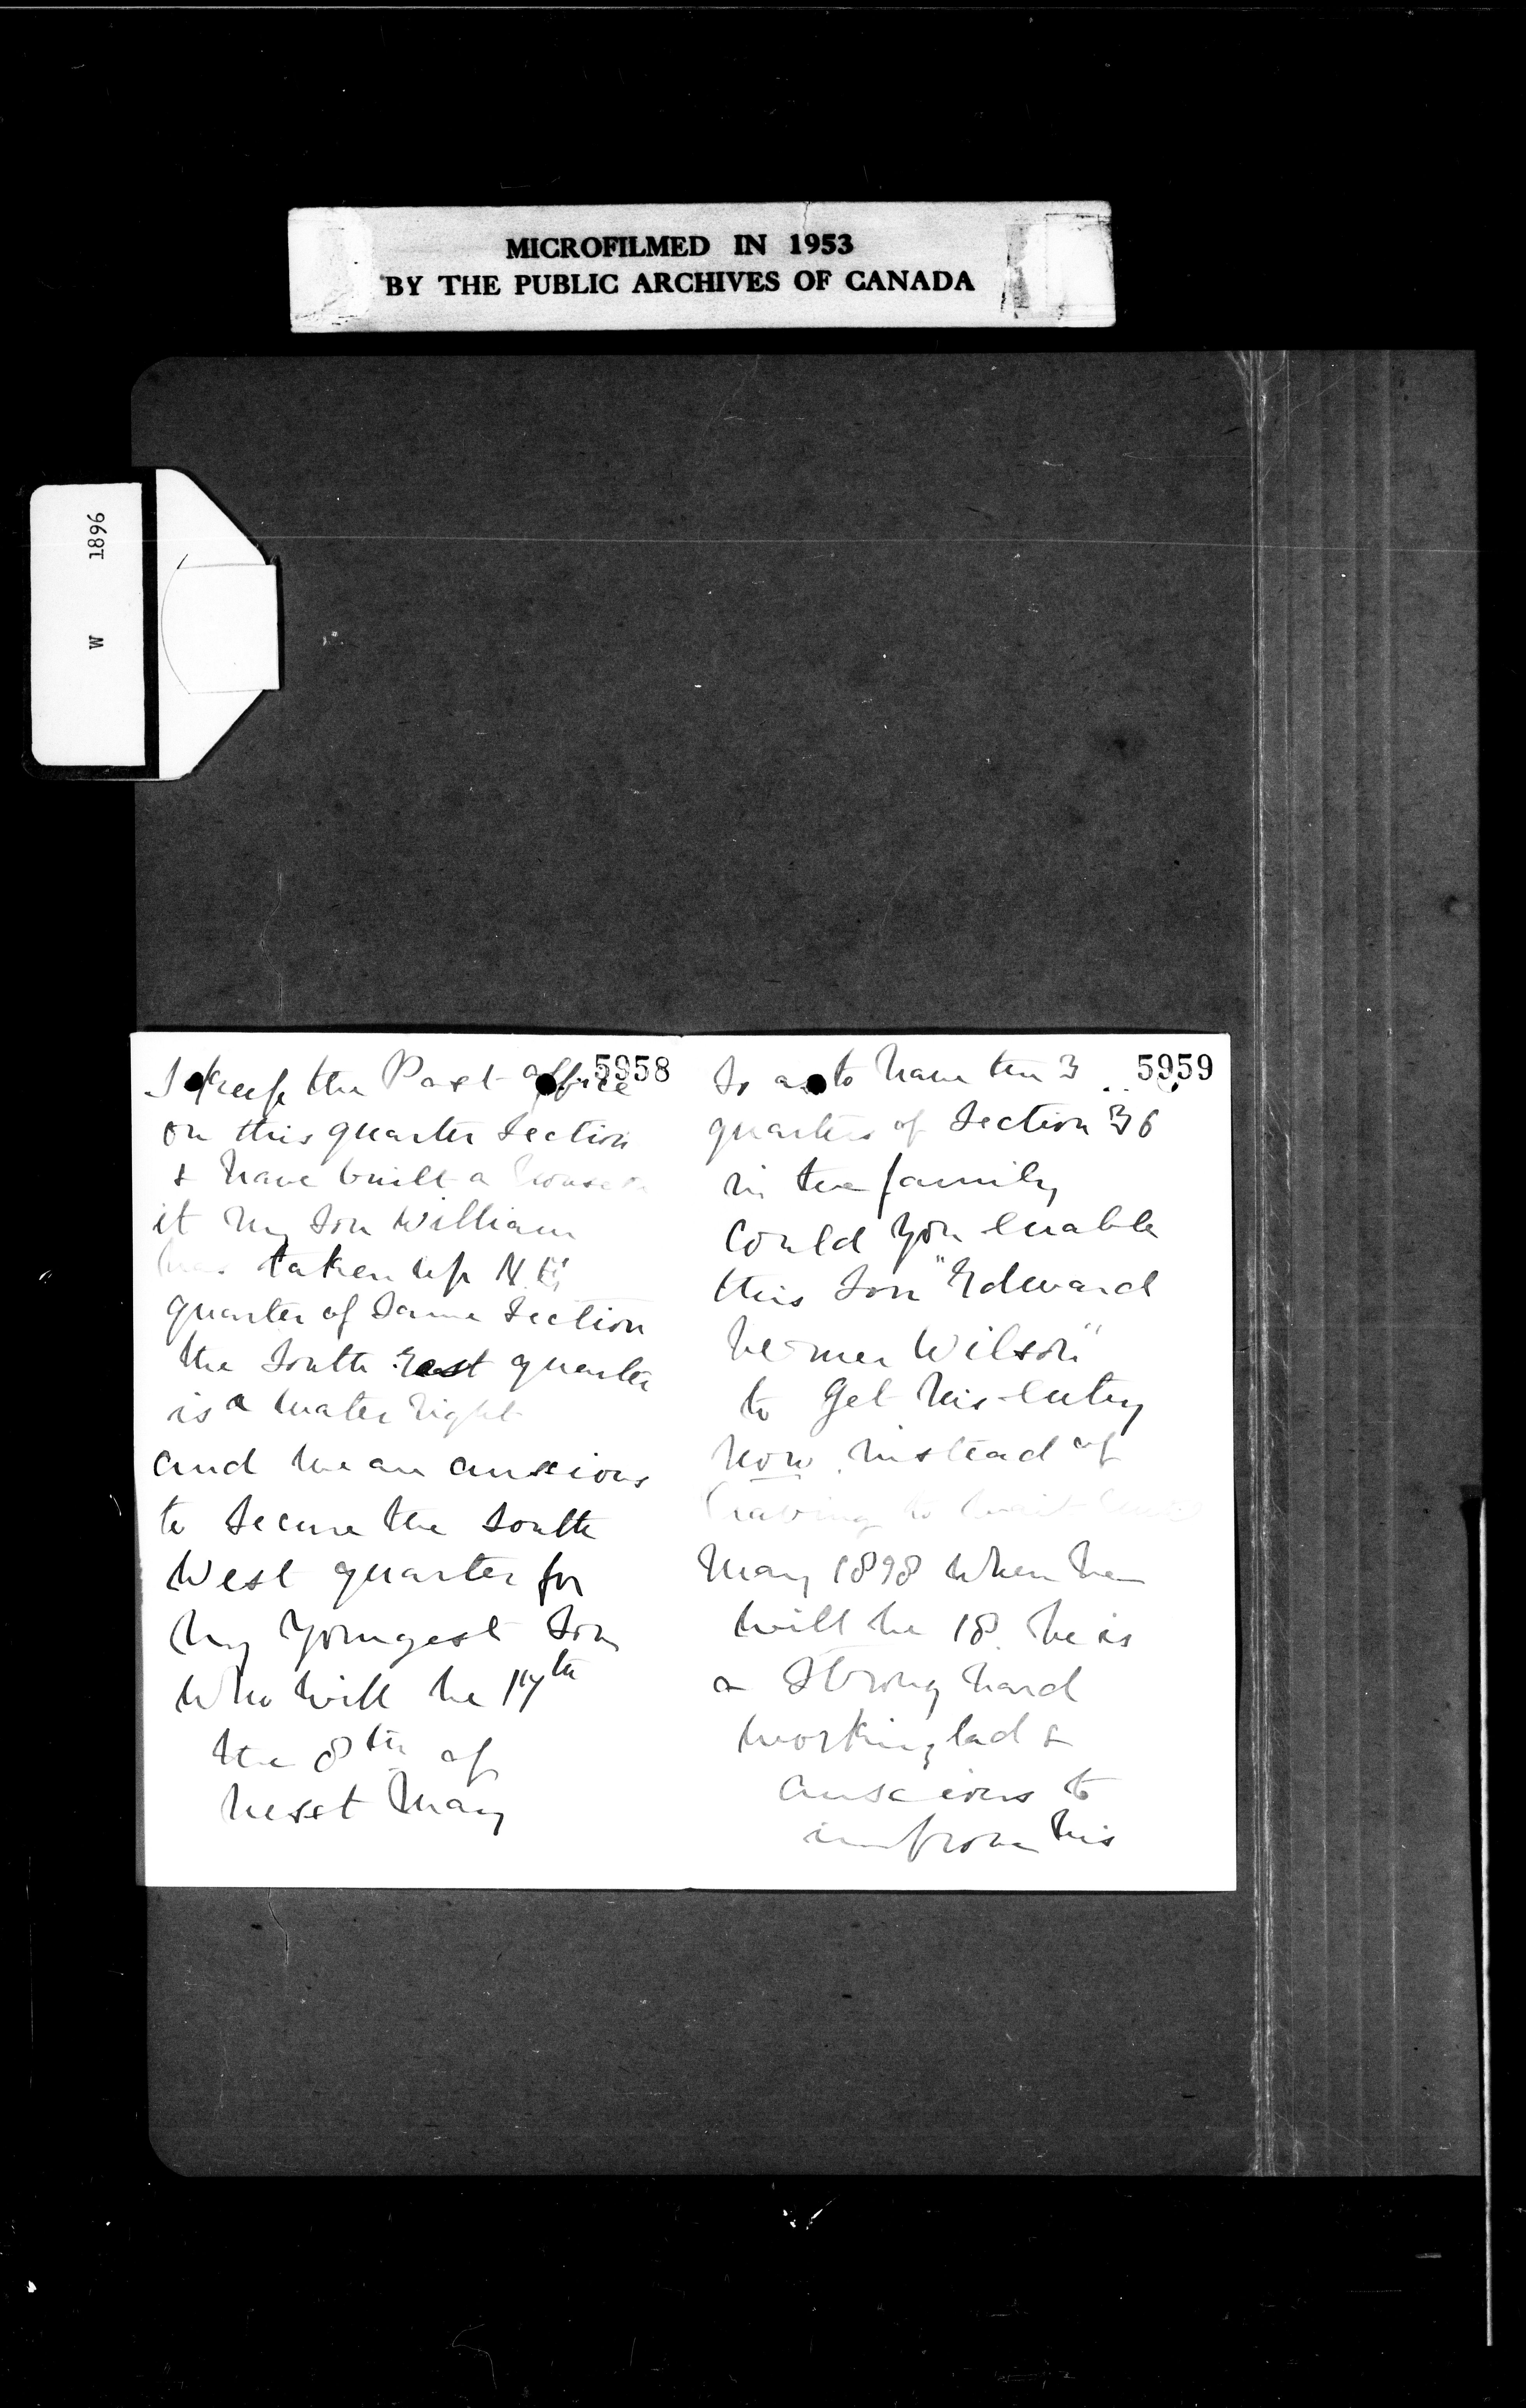 MICROFILMED IN 1953
BY THE PUBLIC ARCHIVES OF CANADA
W 1896
5958
I keep the Post office
on this quarter Section
& have built a house on
it My Son William
has taken up N.E.
quarter of Same Section
the South East quarter
is a water right
and we are anxious
to Secure the South
West quarter for
my youngest Son
who will be 17th
the 8th of
next May
5959
So as to have the 3
quarters of Section 36
in the family
Could you enable
this Son "Edward
Wilson"
to get his entry
now instead of
having to wait until
May 1898 when he
will be 18. he is
a Strong hard
working lad &
anxious to
improve his